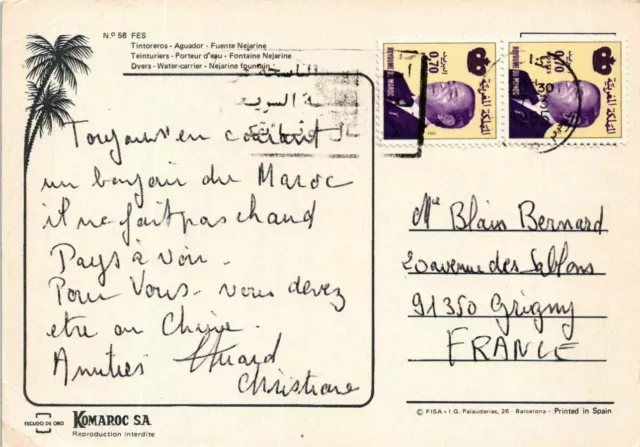 N.º 58 FES
Tintoreros - Aguador - Fuente Nejarine
Teinturiers - Porteur d'eau - Fontaine Nejarine
Dyers - Water-carrier - Nejarine fountain
0,70
ROYAUME DU MAROC
المملكة المغربية
0,70
ROYAUME DU MAROC
المملكة المغربية
Toujours en courant
un bonjour du Maroc
il ne fait pas chaud
Pays à voir.
Pour Vous - vous devez
etre au
Amitiés
Christiane
Me Blain Bernard
20 avenue des Sablons
91350 Grigny
FRANCE
ESCUDO DE ORO
KOMAROC S.A.
Reproduction interdite
© FISA - I.G. Palaudarias, 26 - Barcelona - Printed in Spain